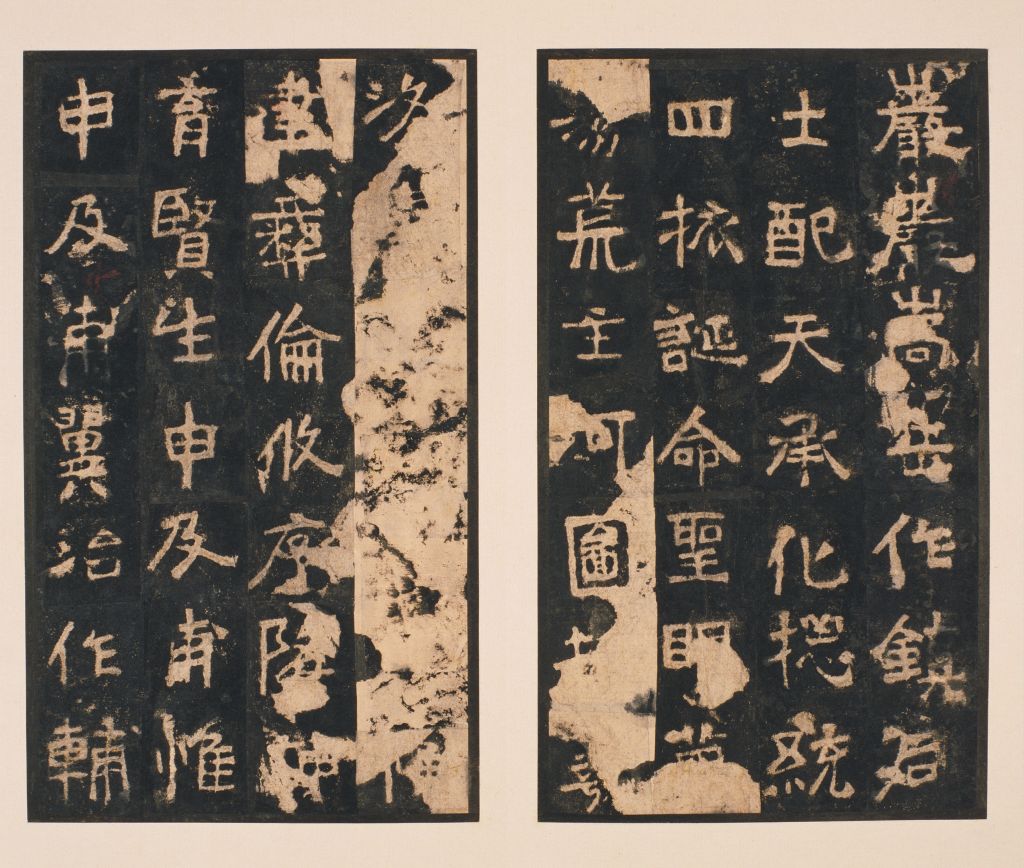 巖巖嵩岳作鎮后
土配天承化摠統
四誕命聖明
荒主河圖
彝倫攸序隆神
育賢生申及甫惟
申及甫翼治作輔